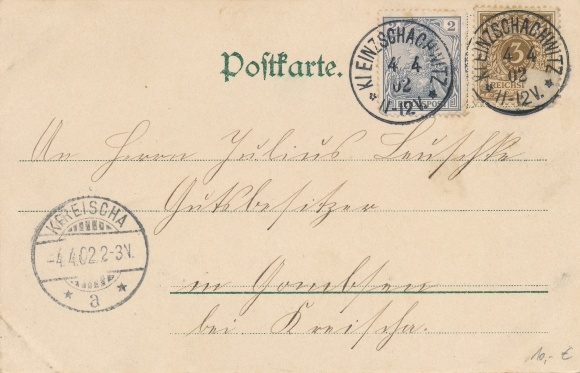 Postkarte.
2
REICHSPOST
KLEINZSCHACHWITZ
4 4
02
11-12V.
3
REICHSPOST
KLEINZSCHACHWITZ
4 4
02
11-12V.
An Herrn Julius Leuschke
Gutsbesitzer
KREISCHA
-4.4.02.2-3V.
a
in Gombsen
bei Kreischa.
10,- €